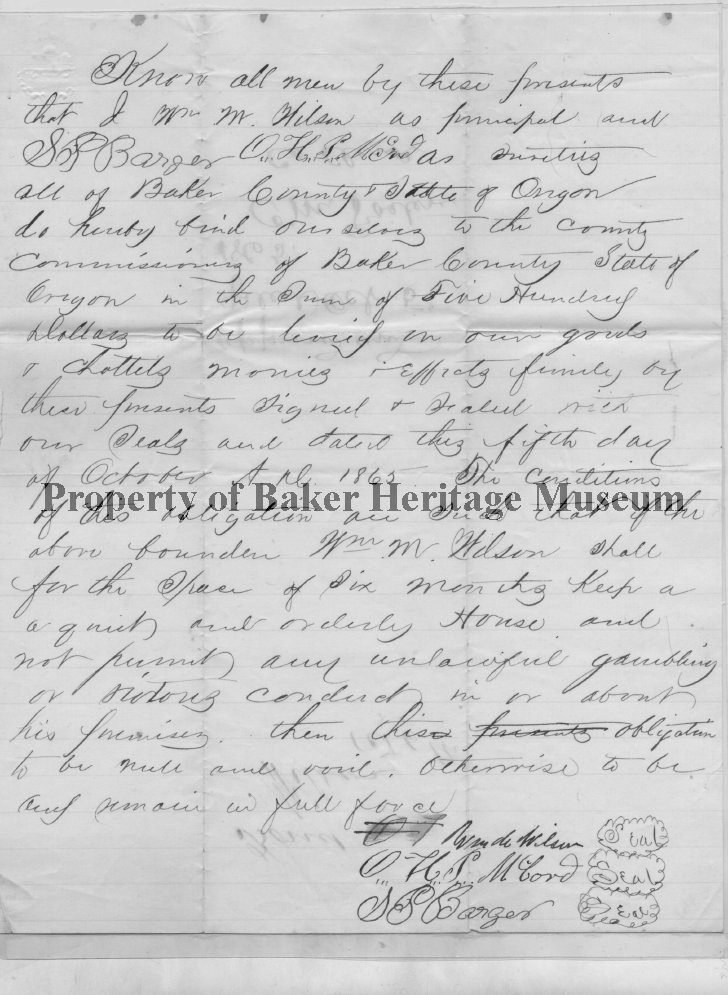 Know all men by these presents
that I Wm M. Wilson as principal and
S P Barger O.. H.. P.. McCord as sureties
all of Baker County & State of Oregon
do hereby bind ourselves to the county
Commissioners of Baker County State of
Oregon in the Sum of Five Hundred
Dollars to be levied on our goods
& Chattels monies & Effects firmly by
these presents Signed & Sealed with
our Seals and dated this fifth day
of October A.D. 1865. The Conditions
Property of Baker Heritage Museum
of this obligation are Such that if the
above bounden Wm. M. Wilson shall
for the Space of Six months Keep a
a quiet and orderly House and
not permit any unlawful gambling
or riotous conduct in or about
his premises. then this presents obligation
to be null and void. otherwise to be
and remain in full force
Wm de Wilson Seal
O.. H.. P.. McCord Seal
S P Barger Seal